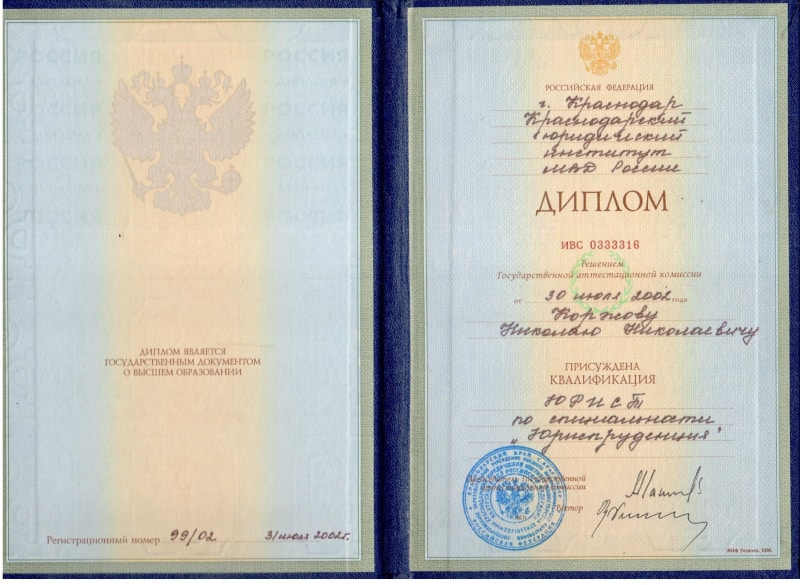 ДИПЛОМ ЯВЛЯЕТСЯ
ГОСУДАРСТВЕННЫМ ДОКУМЕНТОМ
О ВЫСШЕМ ОБРАЗОВАНИИ
Регистрационный номер 99/02 31 июля 2002г.
РОССИЙСКАЯ ФЕДЕРАЦИЯ
г. Краснодар
Краснодарский
юридический
институт
МВД России
ДИПЛОМ
ИВС 0333316
Решением
Государственной аттестационной комиссии
от 30 июля 2002 года
Коржову
Николаю Николаевичу
ПРИСУЖДЕНА
КВАЛИФИКАЦИЯ
ЮРИСТ
по специальности
„Юриспруденция"
Председатель Государственной
аттестационной комиссии
Ректор